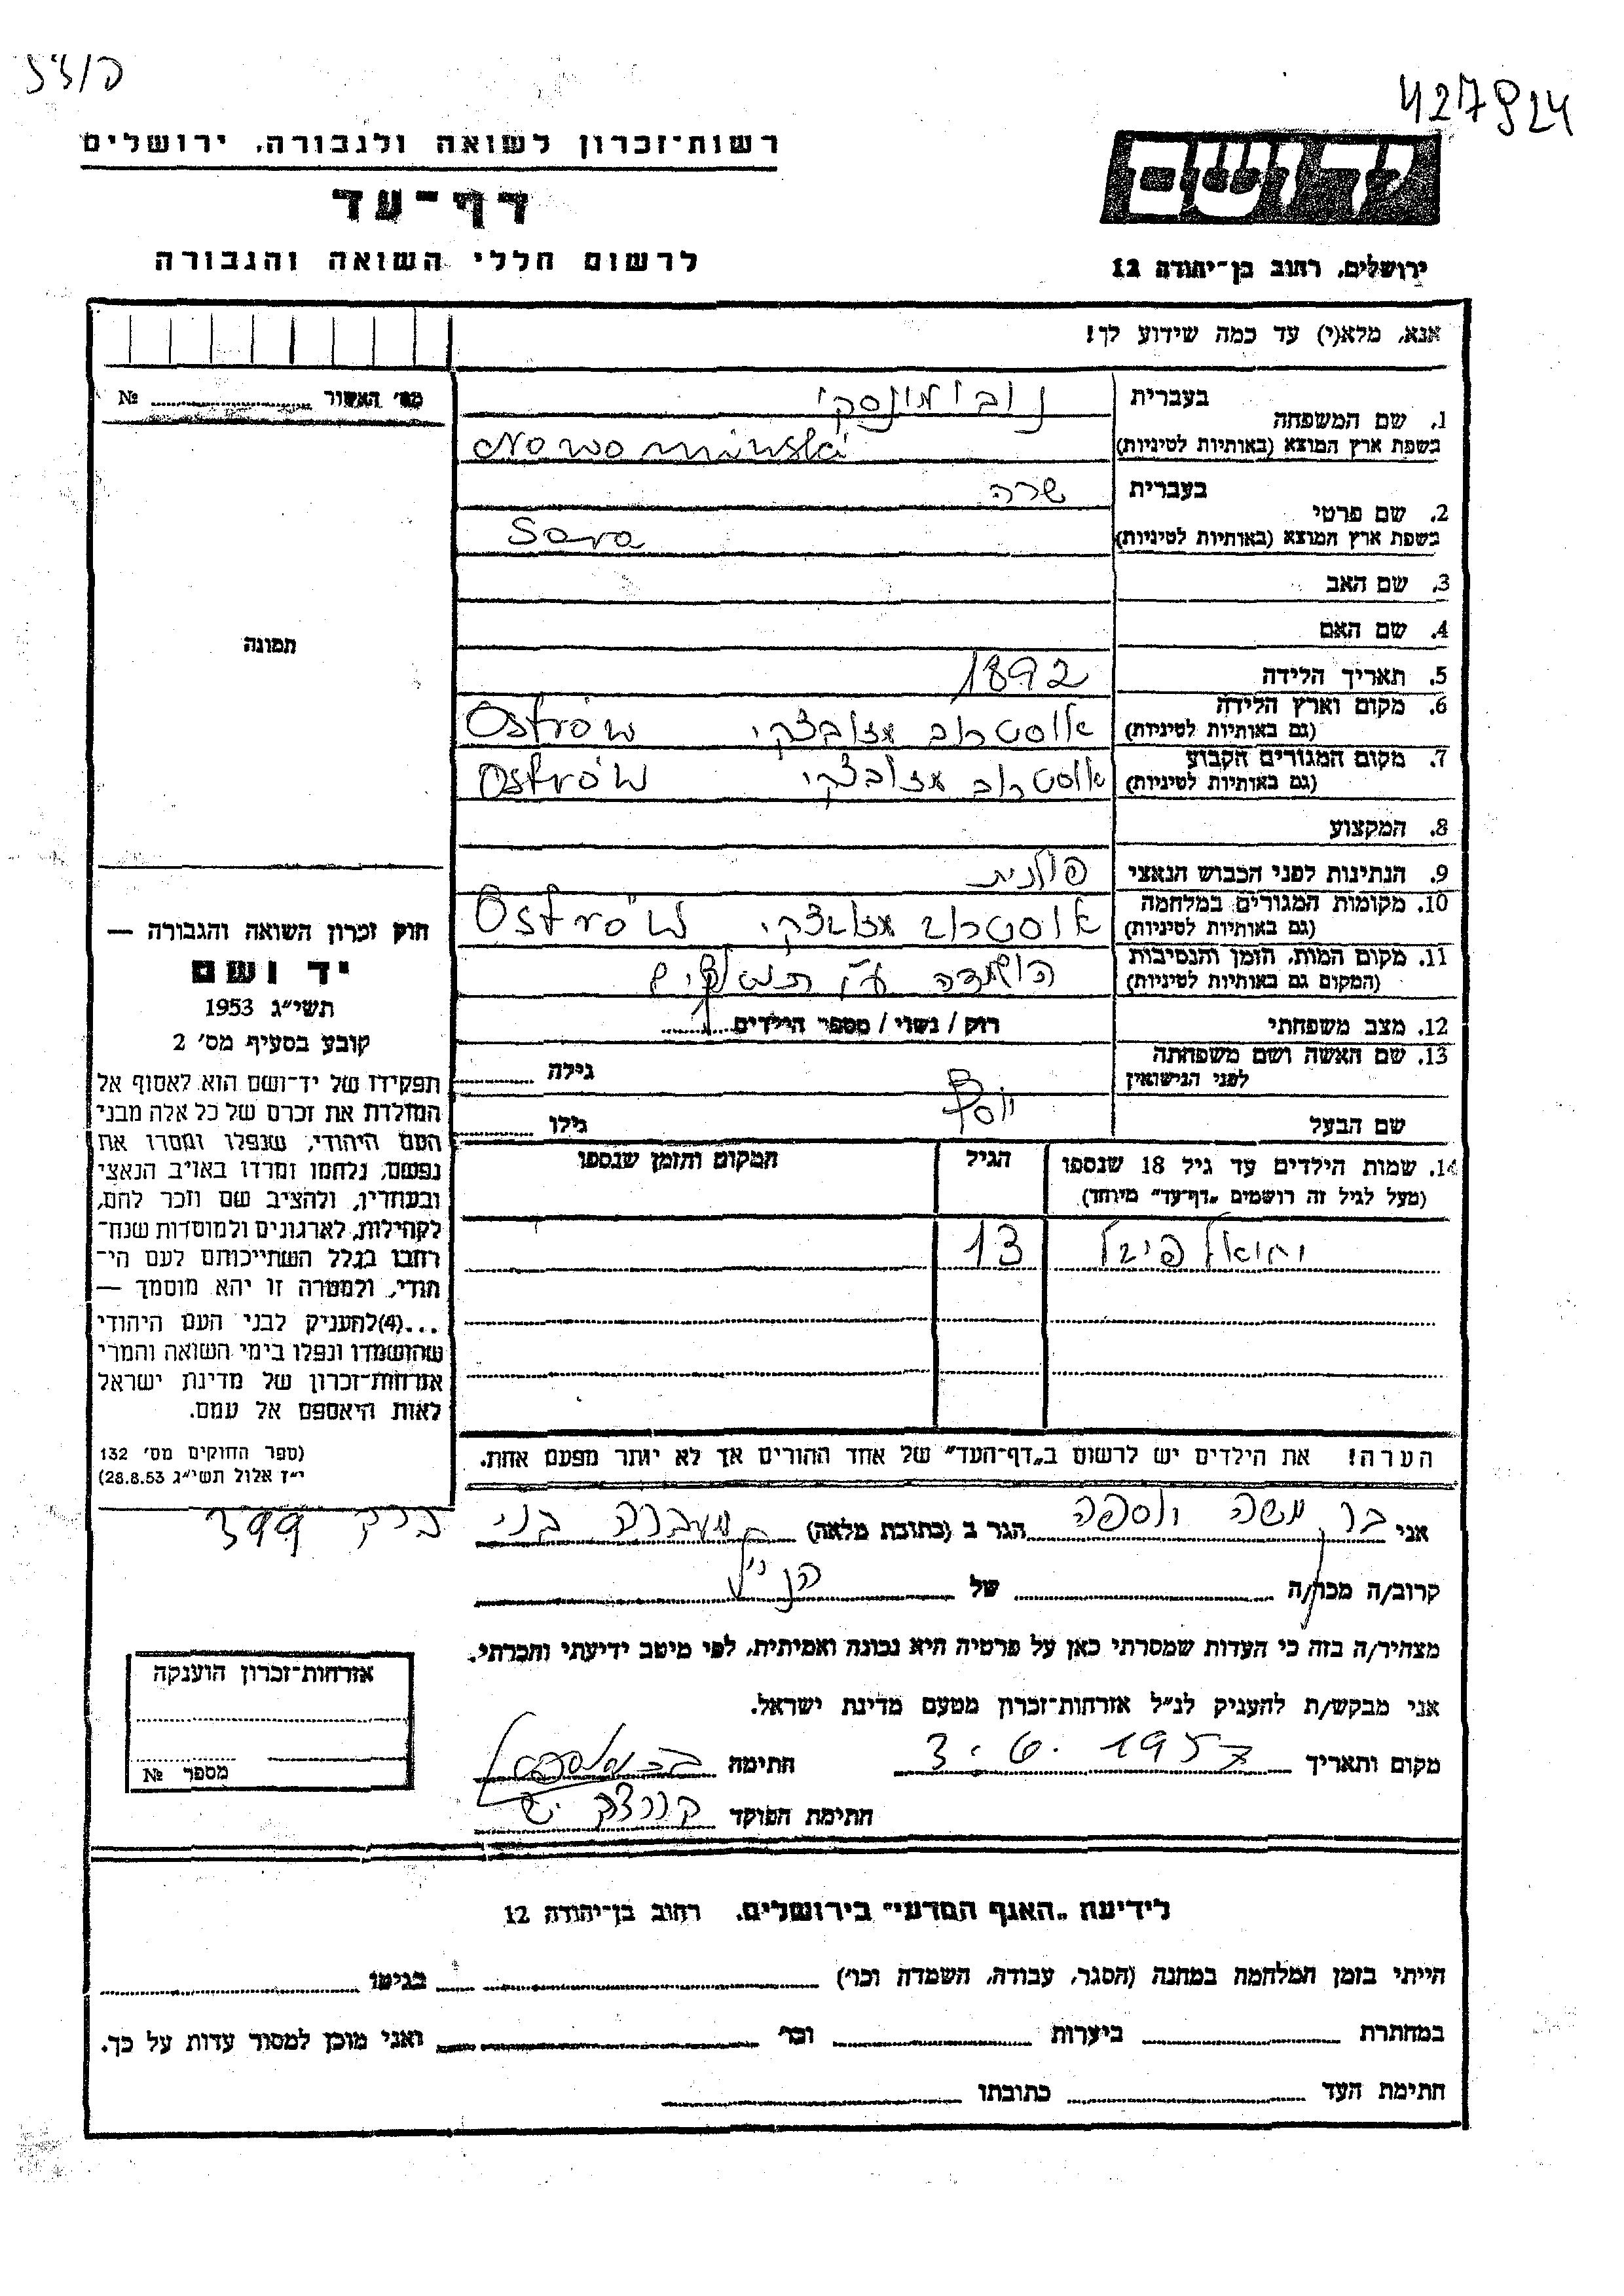 427924
רשות־זכרון לשואה ולגבורה. ירושלים
דף־עד
לרשום חללי השואה והגבורה
ידושם
ירושלים. רחוב בן־יהודה 12
אנא, מלא(י) עד כמה שידוע לך!
מס׳ האשור № ........
1. שם המשפחה
בעברית נובומינסקי
בשפת ארץ המוצא (באותיות לטיניות) Nowominski
2. שם פרטי
בעברית שרה
בשפת ארץ המוצא (באותיות לטיניות) Sara
3. שם האב
4. שם האם
תמונה
5. תאריך הלידה 1892
6. מקום וארץ הלידה (גם באותיות לטיניות) אוסטרוב מזובצקי Ostrów
7. מקום המגורים הקבוע (גם באותיות לטיניות) אוסטרוב מזובצקי Ostrów
8. המקצוע
9. הנתינות לפני הכבוש הנאצי פולנית
10. מקומות המגורים במלחמה (גם באותיות לטיניות) אוסטרוב מזובצקי Ostrów
11. מקום המות, הזמן והנסיבות (המקום גם באותיות לטיניות) הושמדה ע״י
12. מצב משפחתי רוק / נשוי / מספר הילדים 1
13. שם האשה ושם משפחתה לפני הנישואין גילה ........
שם הבעל יוסף גילו ........
14. שמות הילדים עד גיל 18 שנספו (מעל לגיל זה רושמים „דף־עד״ מיוחד) הגיל המקום והזמן שנספו
יחיאל פייבל 13
חוק זכרון השואה והגבורה —
יד ושם
תשי״ג 1953
קובע בסעיף מס׳ 2
תפקידו של יד־ושם הוא לאסוף אל
המולדת את זכרם של כל אלה מבני
העם היהודי, שנפלו ומסרו את
נפשם, נלחמו ומרדו באויב הנאצי
ובעוזריו, ולהציב שם וזכר להם,
לקהילות, לארגונים ולמוסדות שנח־
רחבו בגלל השתייכותם לעם הי־
הודי, ולמטרה זו יהא מוסמך —
...(4)להעניק לבני העם היהודי
שהושמדו ונפלו בימי השואה והמרי
אזרחות־זכרון של מדינת ישראל
לאות היאספם אל עמם.
(ספר החוקים מס׳ 132
י״ז אלול תשי״ג 28.8.53)
הערה! את הילדים יש לרשום ב„דף־העד״ של אחד ההורים אך לא יותר מפעם אחת.
אני בר משה יוספה הגר ב (כתובת מלאה) מעברה בני ברק 399
קרוב/ה מכר/ה ........ של הנ״ל
מצהיר/ה בזה כי העדות שמסרתי כאן על פרטיה היא נכונה ואמיתית, לפי מיטב ידיעתי והכרתי.
אני מבקש/ת להעניק לנ״ל אזרחות־זכרון מטעם מדינת ישראל.
מקום ותאריך 3.6.1957 חתימה
חתימת הפוקד
אזרחות־זכרון הוענקה
מספר №
לידיעת „האגף המדעי״ בירושלים. רחוב בן־יהודה 12
הייתי בזמן המלחמה במחנה (הסגר, עבודה, השמדה וכו׳) ........ בגיטו ........
במחתרת ........ ביערות ........ וכו׳ ........ ואני מוכן למסור עדות על כך.
חתימת העד ........ כתובתו ........